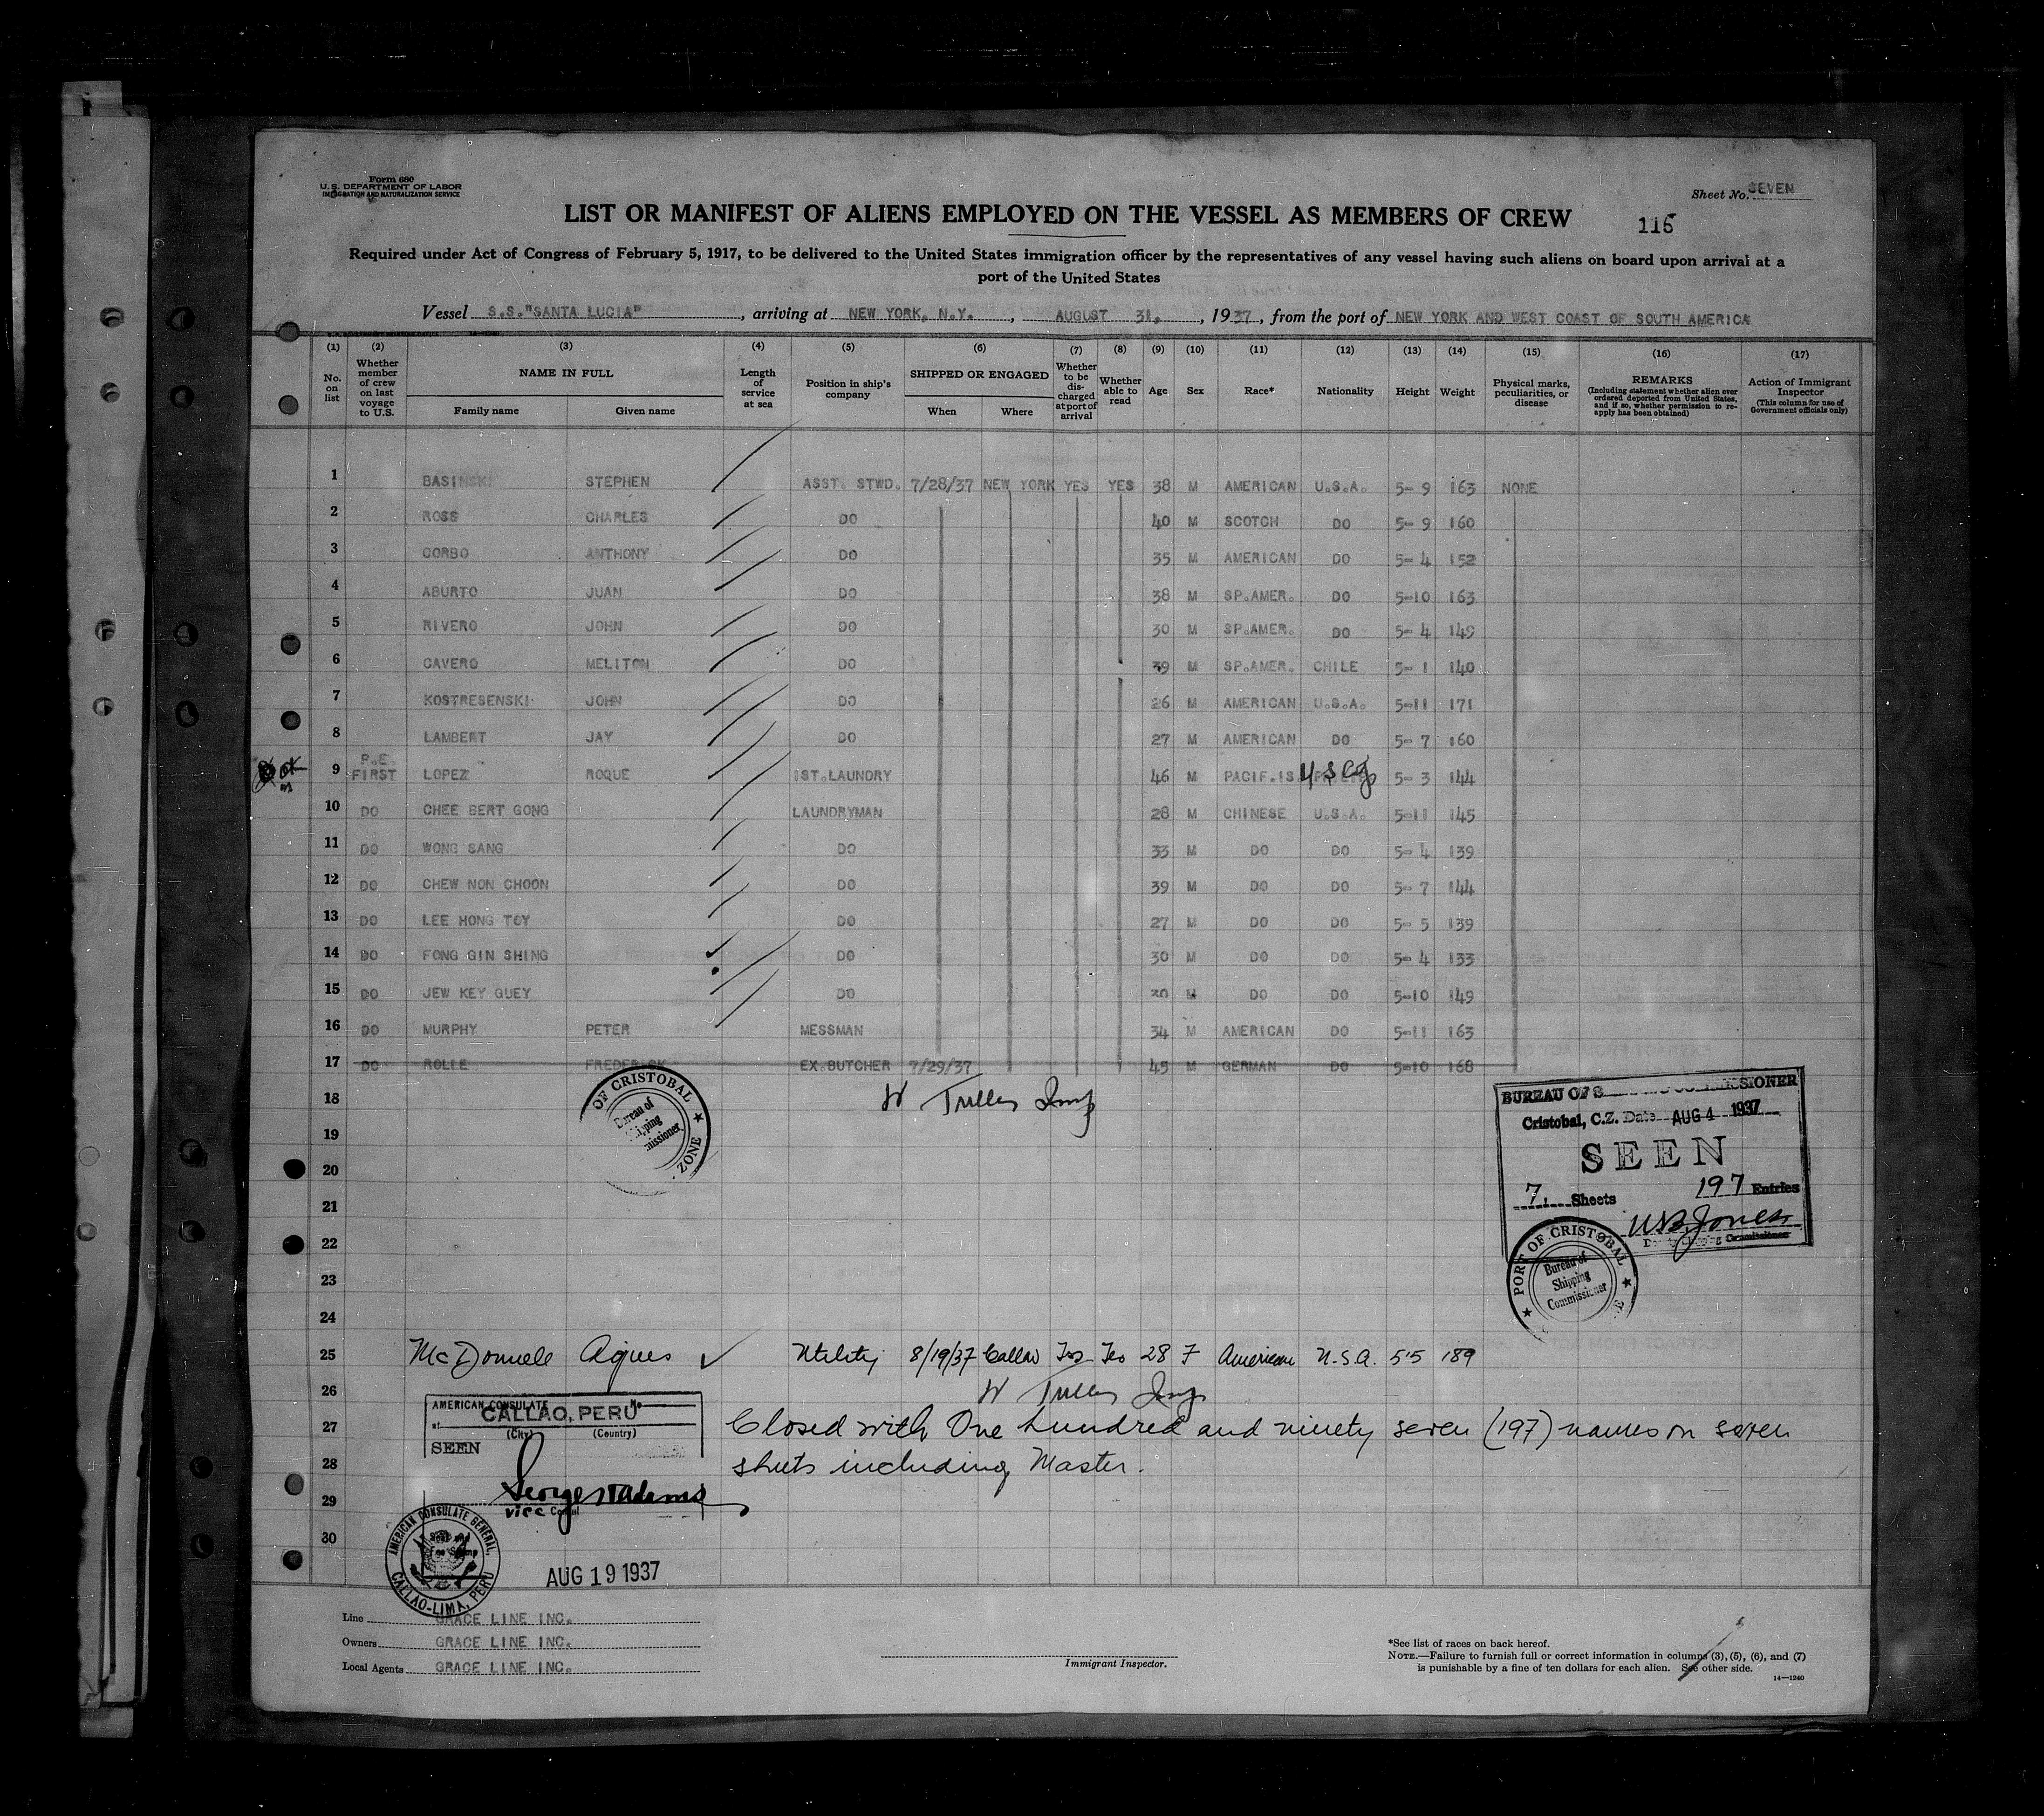 Form 680
U.S. DEPARTMENT OF LABOR
IMMIGRATION AND NATURALIZATION SERVICE
Sheet No. SEVEN
LIST OR MANIFEST OF ALIENS EMPLOYED ON THE VESSEL AS MEMBERS OF CREW
115
Required under Act of Congress of February 5, 1917, to be delivered to the United States immigration officer by the representatives of any vessel having such aliens on board upon arrival at a
port of the United States
Vessel S.S."SANTA LUCIA", arriving at NEW YORK, N.Y., AUGUST 31, 1937, from the port of NEW YORK AND WEST COAST OF SOUTH AMERICA
(1) (2) (3) (4) (5) (6) (7) (8) (9) (10) (11) (12) (13) (14) (15) (16) (17)
No. on list
Whether member of crew on last voyage to U.S.
NAME IN FULL
Family name Given name
Length of service at sea
Position in ship's company
SHIPPED OR ENGAGED
When Where
Whether to be discharged at port of arrival
Whether able to read
Age Sex Race* Nationality Height Weight
Physical marks, peculiarities, or disease
REMARKS
(Including statement whether alien ever ordered deported from United States, and if so, whether permission to re-apply has been obtained)
Action of Immigrant Inspector
(This column for use of Government officials only)
1 BASINSKI STEPHEN ASST. STWD. 7/28/37 NEW YORK YES YES 38 M AMERICAN U.S.A. 5-9 163 NONE
2 ROSS CHARLES DO 40 M SCOTCH DO 5-9 160
3 CORBO ANTHONY DO 35 M AMERICAN DO 5-4 152
4 ABURTO JUAN DO 38 M SP.AMER. DO 5-10 163
5 RIVERO JOHN DO 30 M SP.AMER. DO 5-4 149
6 CAVERO MELITON DO 39 M SP.AMER. CHILE 5-1 140
7 KOSTRESENSKI JOHN DO 26 M AMERICAN U.S.A. 5-11 171
8 LAMBERT JAY DO 27 M AMERICAN DO 5-7 160
9 P.E. FIRST LOPEZ ROQUE 1ST.LAUNDRY 46 M PACIF.IS. 5-3 144
10 DO CHEE BERT GONG LAUNDRYMAN 28 M CHINESE U.S.A. 5-11 145
11 DO WONG SANG DO 33 M DO DO 5-4 139
12 DO CHEW NON CHOON DO 39 M DO DO 5-7 144
13 DO LEE HONG TOY DO 27 M DO DO 5-5 139
14 DO FONG GIN SHING DO 30 M DO DO 5-4 133
15 DO JEW KEY GUEY DO 30 M DO DO 5-10 149
16 DO MURPHY PETER MESSMAN 34 M AMERICAN DO 5-11 163
17 DO ROLLE FREDERICK EX.BUTCHER 7/29/37 45 M GERMAN DO 5-10 168
18
OF CRISTOBAL ZONE
Bureau of Shipping
BUREAU OF
Cristobal, C.Z. Date AUG 4 1937
SEEN
7 Sheets 197 Entries
Jones
PORT OF CRISTOBAL
Bureau of Shipping Commissioner
19
20
21
22
23
24
25 McDonnell Agnes Utility 8/19/37 Callao Yes Yes 28 F American U.S.A. 5'5 189
26
AMERICAN CONSULATE
CALLAO, PERU
(City) (Country)
SEEN
27 Closed with One hundred and ninety seven (197) names on seven
28 sheets including Master.
29
Vice Consul
30
AMERICAN CONSULATE GENERAL, CALLAO-LIMA, PERU
AUG 19 1937
Line GRACE LINE INC.
Owners GRACE LINE INC.
Local Agents GRACE LINE INC.
Immigrant Inspector.
*See list of races on back hereof.
NOTE.—Failure to furnish full or correct information in columns (3), (5), (6), and (7)
is punishable by a fine of ten dollars for each alien. See other side.
14—1240